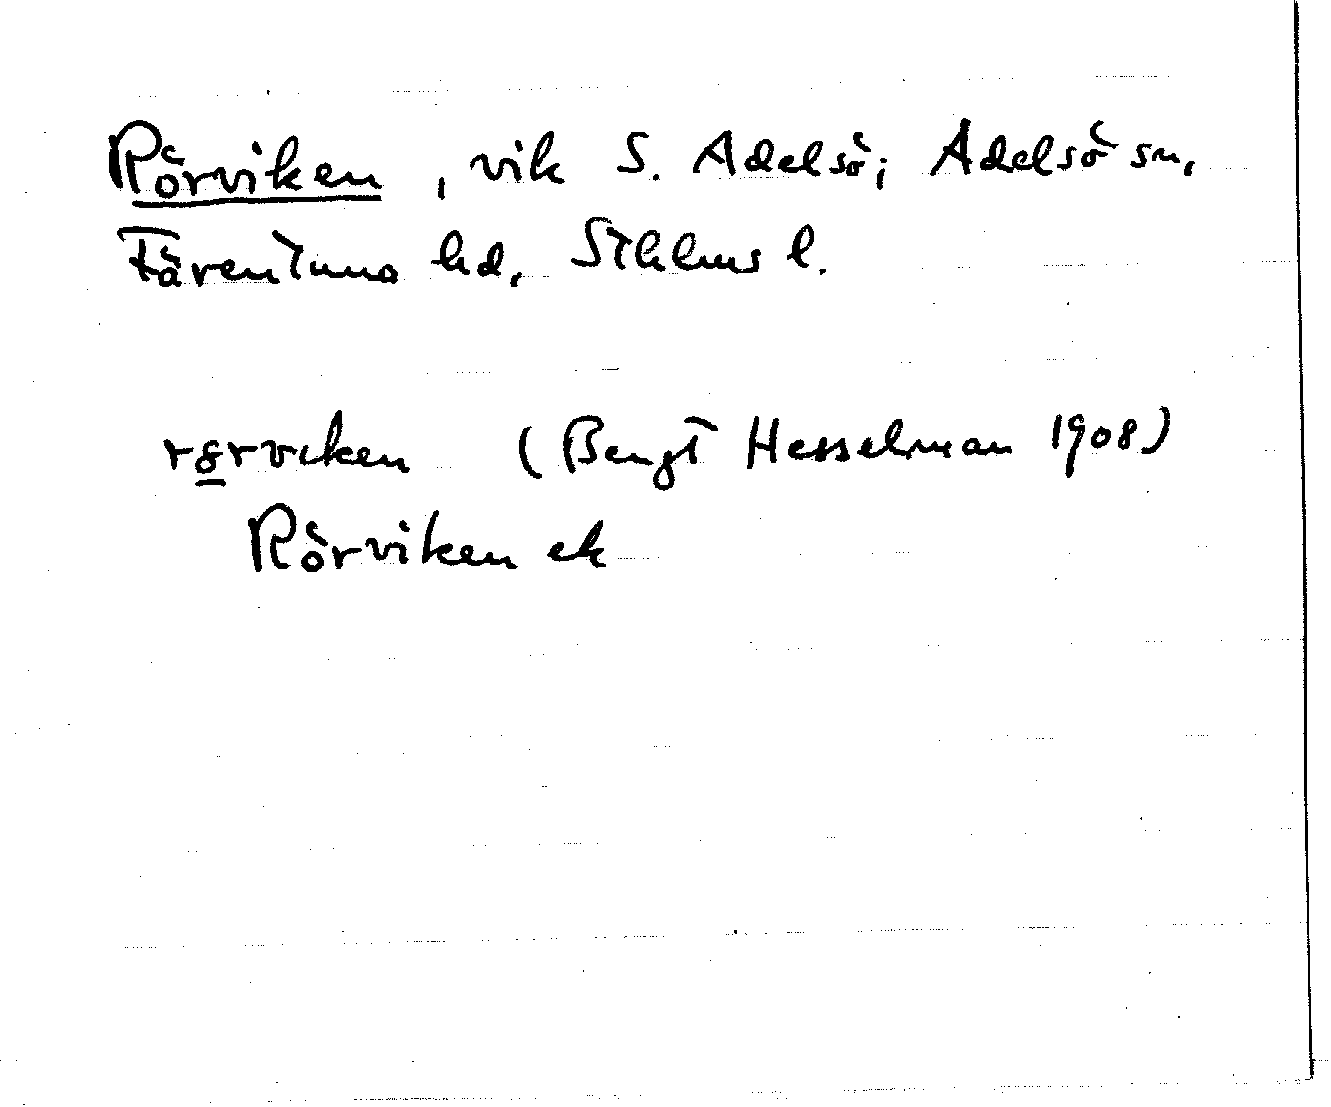 Rörviken, vik S. Adelsö; Adelsö sn,
Färentuna hd, Sthlms l.
r8rvıken (Bengt Hesselman 1908)
Rörviken ek